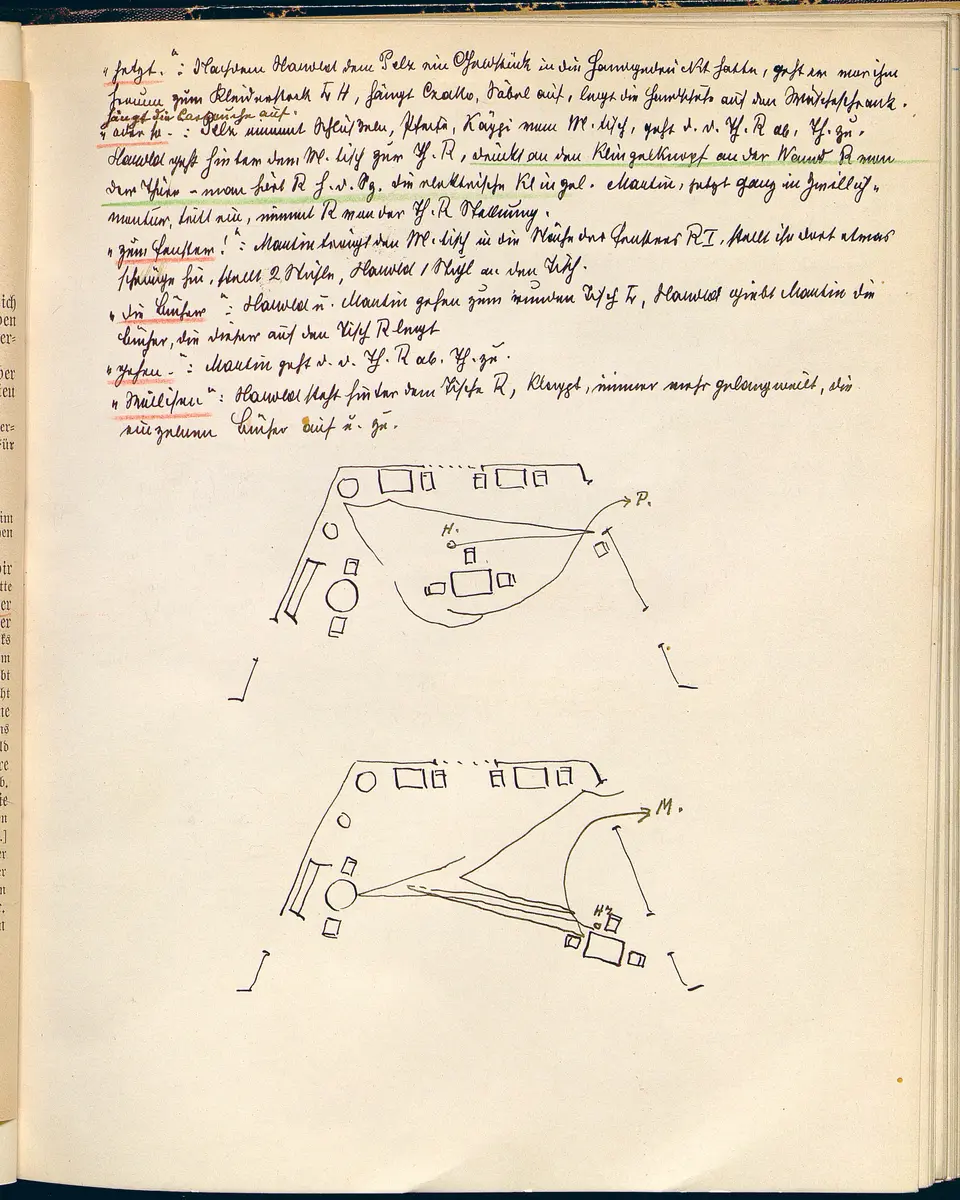 "Jetzt.": Nachdem Harold dem Pelz ein Geldstück in die Hand gedrückt hatte, geht er vor ihm
herum zum Kleiderstock L H, hängt Czako, Säbel auf, legt die Handschuhe auf den Wäscheschrank.
hängt die auf.
"aber so -: Pelz nimmt Schlüsseln, Pfeife, Käppi vom M. tisch, geht d. d. Th. R ab. Th. zu.
Harold geht hinter dem M. tisch zur Th. R, drückt an den Klingelknopf an der Wand R von
der Thüre - man hört R h. d. Sz. die elektrische Klingel. Martin, jetzt ganz in Zwillich-
montur, tritt ein, nimmt R von der Th. R Stellung.
"zum Fenster!": Martin trägt den M. tisch in die Nähe des Fensters R I, stellt ihn dort etwas
schräge hin, stellt 2 Stühle, Harold 1 Stuhl an den Tisch.
"die Bücher": Harold u. Martin gehen zum runden Tisch L, Harold giebt Martin die
Bücher, die dieser auf den Tisch R legt
"gehen -": Martin geht d. d. Th. R ab. Th. zu.
": Harold steht hinter dem Tische R, klappt, immer mehr gelangweilt, die
einzelnen Bücher auf u. zu.
P.
H.
M.
H